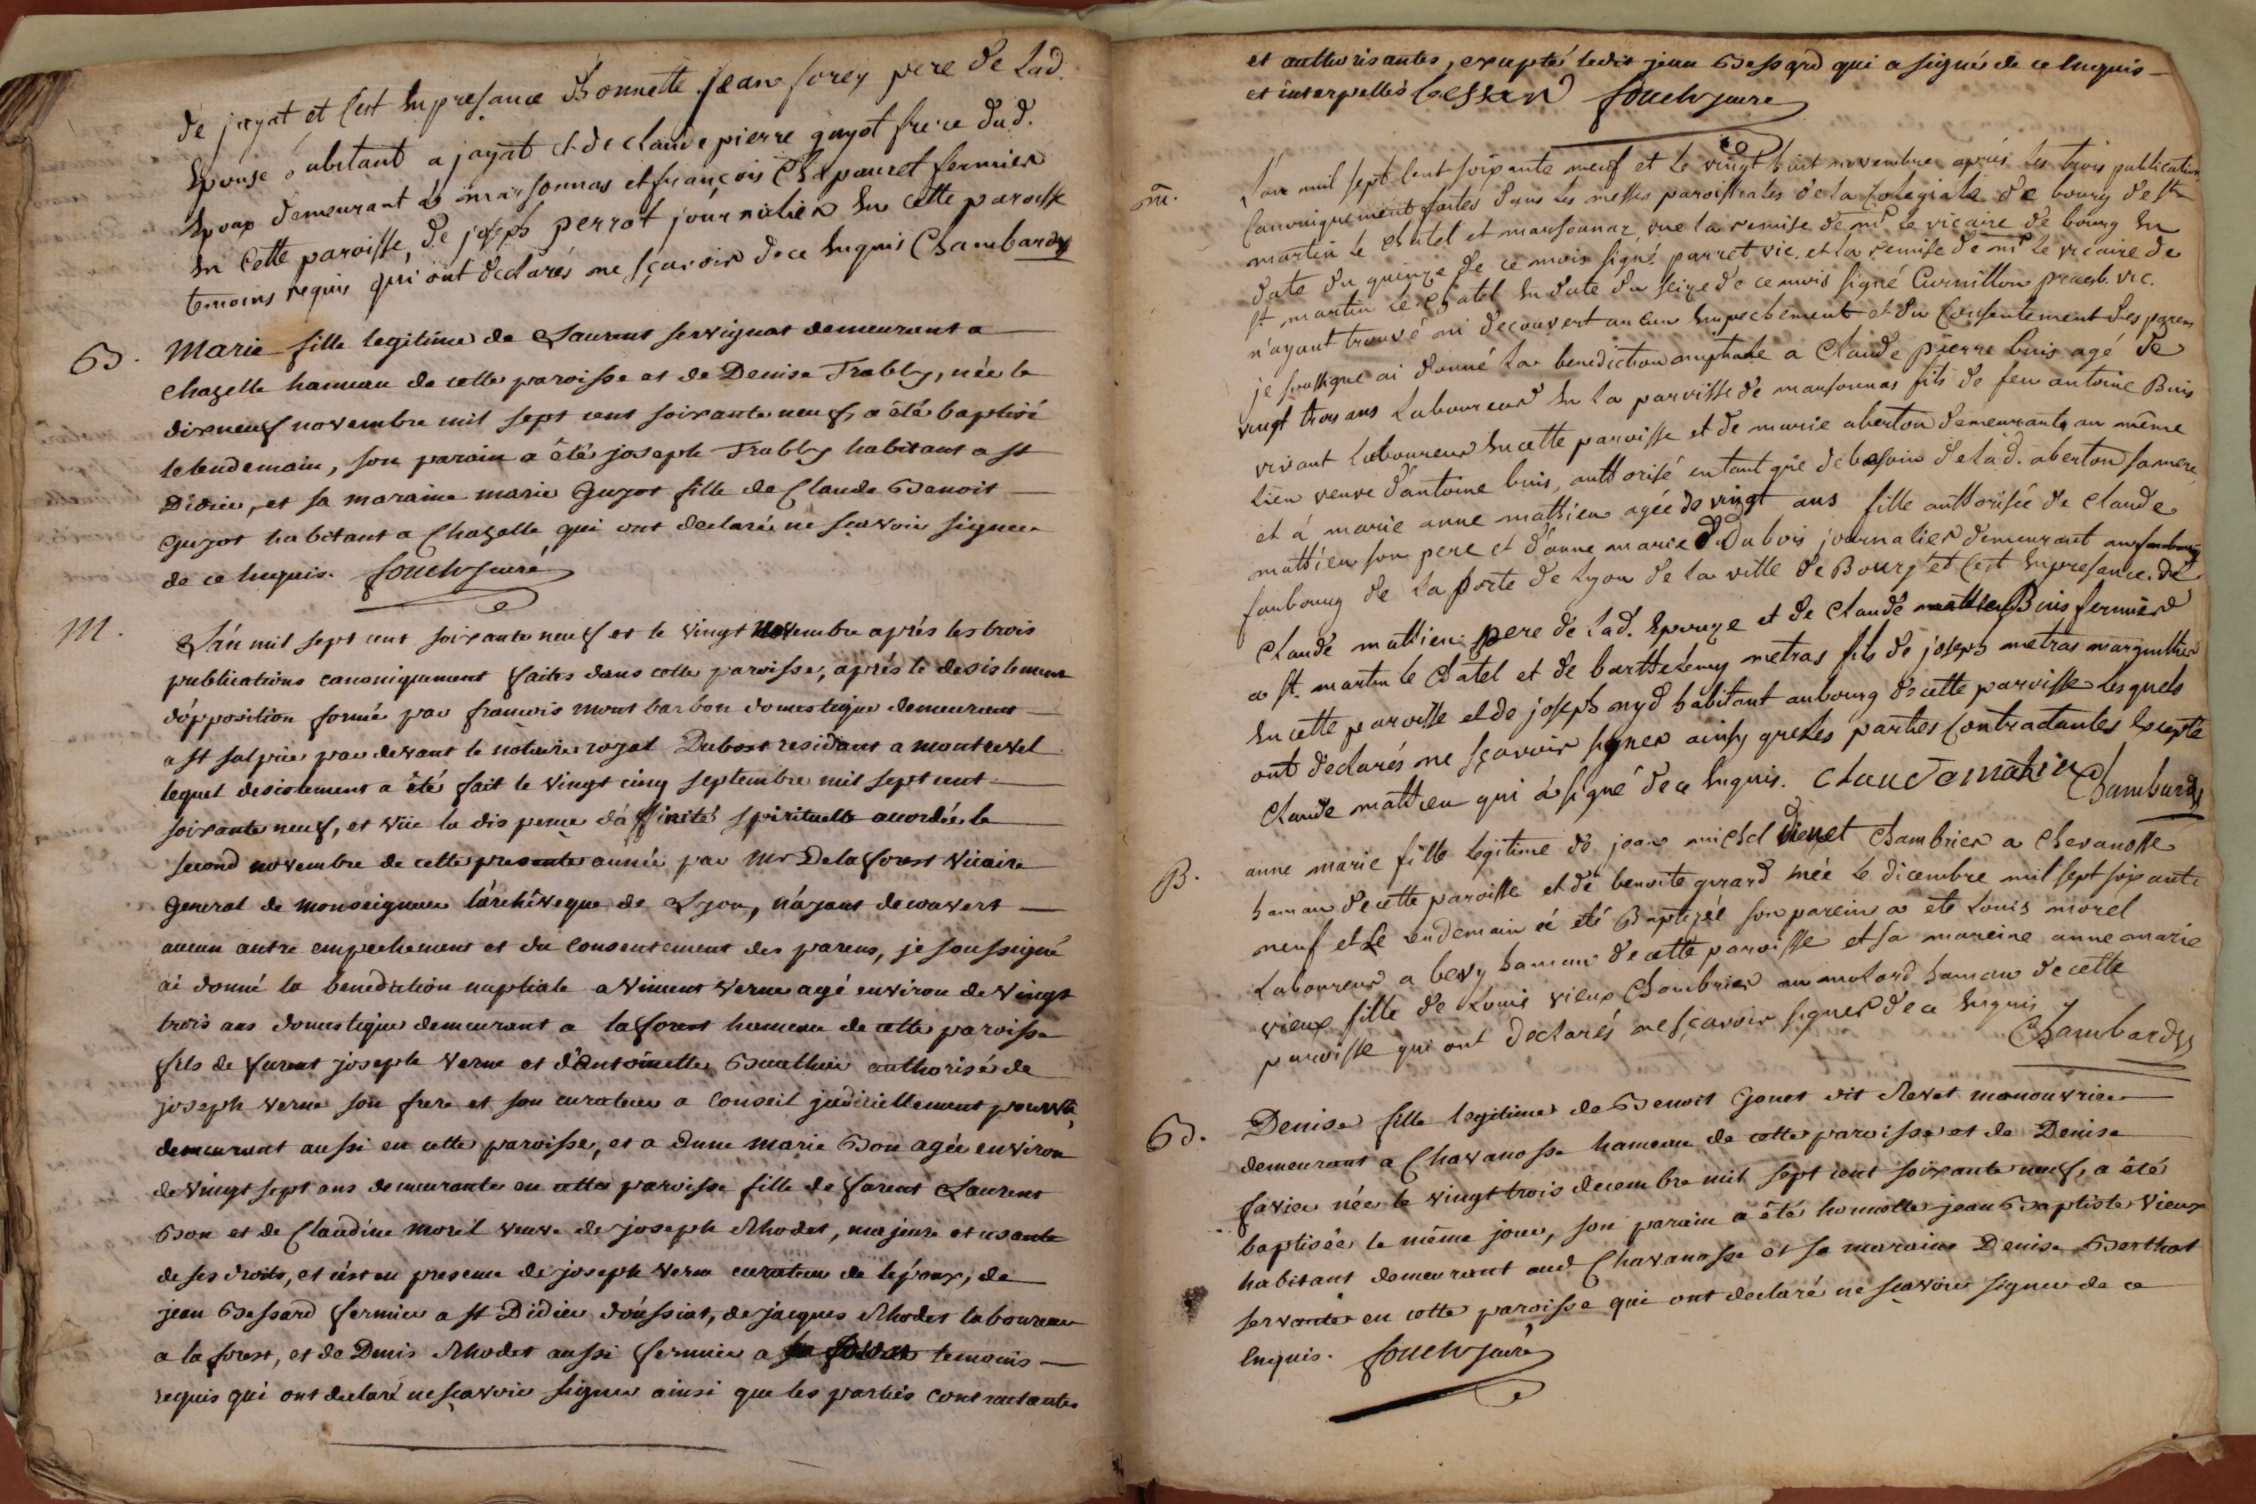 de jayat et c'est en presance d'honnette jean forey pere de lad.
epouse habitant a jayat et de claude pierre guyot frere dud.
epoux demeurant a marsonnas et françois Chapauret fermier
en cette paroisse, de joseph perrot journalier en cette paroisse
temoins requis qui ont declarés ne sçavoir de ce enquis Chambardy
B. Marie fille legitime de Laurent servignat demeurant a
Chazelle hameau de cette paroisse et de Denise Frabby, née le
dixneuf novembre mil sept cent soixante neuf, a été baptisé
le lendemain, son parain a été joseph Frabby habitant a st
Didier, et sa maraine marie Guyot fille de Claude Benoit
Guyot habitant a Chazelle qui ont declaré ne scavoir signer
de ce enquis.
M. L'an mil sept cent soixante neuf et le vingt novembre aprés les trois
publications canoniquement faites dans cette paroisse, aprés le desistement
d'opposition formé par francois montbarbon domestique demeurant
a st sulpice par devant le notaire royal Dubost residant a montrevel
lequel desistement a été fait le vingt cinq septembre mil sept cent
soixante neuf, et vüe la dispense d'affinité spirituelle accordée le
second novembre de cette presente année par Mr Delaforest Vicaire
General de monseigneur l'archêveque de Lyon, n'ayant decouvert
aucun autre empechement et du consentement des parens, je soussigné
ai donné la benediction nuptiale a Vincent Verne agé environ de Vingt
trois ans domestique demeurant a laforest hameau de cette paroisse
fils de furent joseph Verne et d'Antoinette Buathier authorisé de
joseph Verne son frere et son curateur a Conseil judiciellement pourvû,
demeurant aussi en cette paroisse, et a dame Marie Bon agée environ
de Vingt sept ans demeurante en cette paroisse fille de furent Laurent
Bon et de Claudine Morel veuve de joseph Rhodet, majeure et usante
de ses droits, et c'est en presence de joseph Verne curateur de l'epoux, de
jean Bessard fermier a st Didier d'oussiat, de jacques Rhodet laboureur
a la forest, et de Denis Rhodet aussi fermier a temoins
requis qui ont declaré ne sçavoir signer ainsi que les parties contractantes
et authorisantes, excepté ledit jean Bessard qui a signé de ce enquis
et interpellés bessard
m. L'an mil sept cent soixante neuf et le vingt huit novembre aprés les trois publications
Canoniquement faites dans les messes paroissiales de la Colegiale de bourg de st
martin le chatel et marsonnaz, vue la remise de mr le vicaire de bourg en
date du quinze de ce mois signé parret vic. et la remise de mr le vicaire de
st martin le Chatel en date du seize de ce mois signé Curnillon praeb. vic.
n'ayant trouvé ni decouvert aucun empechement et du Consentement des parens
je soussigné ai donné la benediction nuptiale a Claude pierre buis agé de
vingt trois ans Laboureur en la paroisse de marsonnas fils de feu antoine Buis
vivant Laboureur en cette paroisse et de marie aberton demeurante au même
lieu veuve d'antoine buis, authorisé en tant que de besoin de lad. aberton sa mere
et á marie anne mathieu agée de vingt ans fille authorisée de claude
mathieu son pere et d'anne marie Dubois journalier demeurant au
faubourg de la porte de Lyon de la ville de Bourg et c'est en presance. de
Claude mathieu pere de lad. Epouze et de Claude Buis fermier
a st. martin le Chatel et de barthelemy metras fils de joseph metras marguillier
en cette paroisse et de joseph nyd habitant au bourg de cette paroisse lesquels
ont declarés ne sçavoir signer ainsy que les parties Contractantes Excepté
Claude mathieu qui á signé de ce enquis. claude mathieu Chambardy
B. anne marie fille legitime de jean michel vieux et chambrier a Chevanosse
hamau de cette paroisse et de benoite gurard née le dicembre mil sept soixante
neuf et le lendemain a été Baptizée son parein a ete Louis morel
Laboureur a bevy hamau de cette paroisse et sa mareine anne marie
vieux fille de Louis vieux Chambrier au molard hamau de cette
paroisse qui ont declarés ne sçavoir signer de ce enquis
Chambardy
B. Denise fille legitime de Benoit Gonet dit Revet manouvrier
demeurant a Chavanosse hameau de cette paroisse et de Denise
favier née le vingt trois decembre mil sept cent soixante neuf, a été
baptisée le même jour, son parain a été honnette jean Baptiste Vieux
habitant demeurant aud Chavanosse et sa maraine Denise Berthot
servante en cette paroisse qui ont declaré ne scavoir signer de ce
enquis.